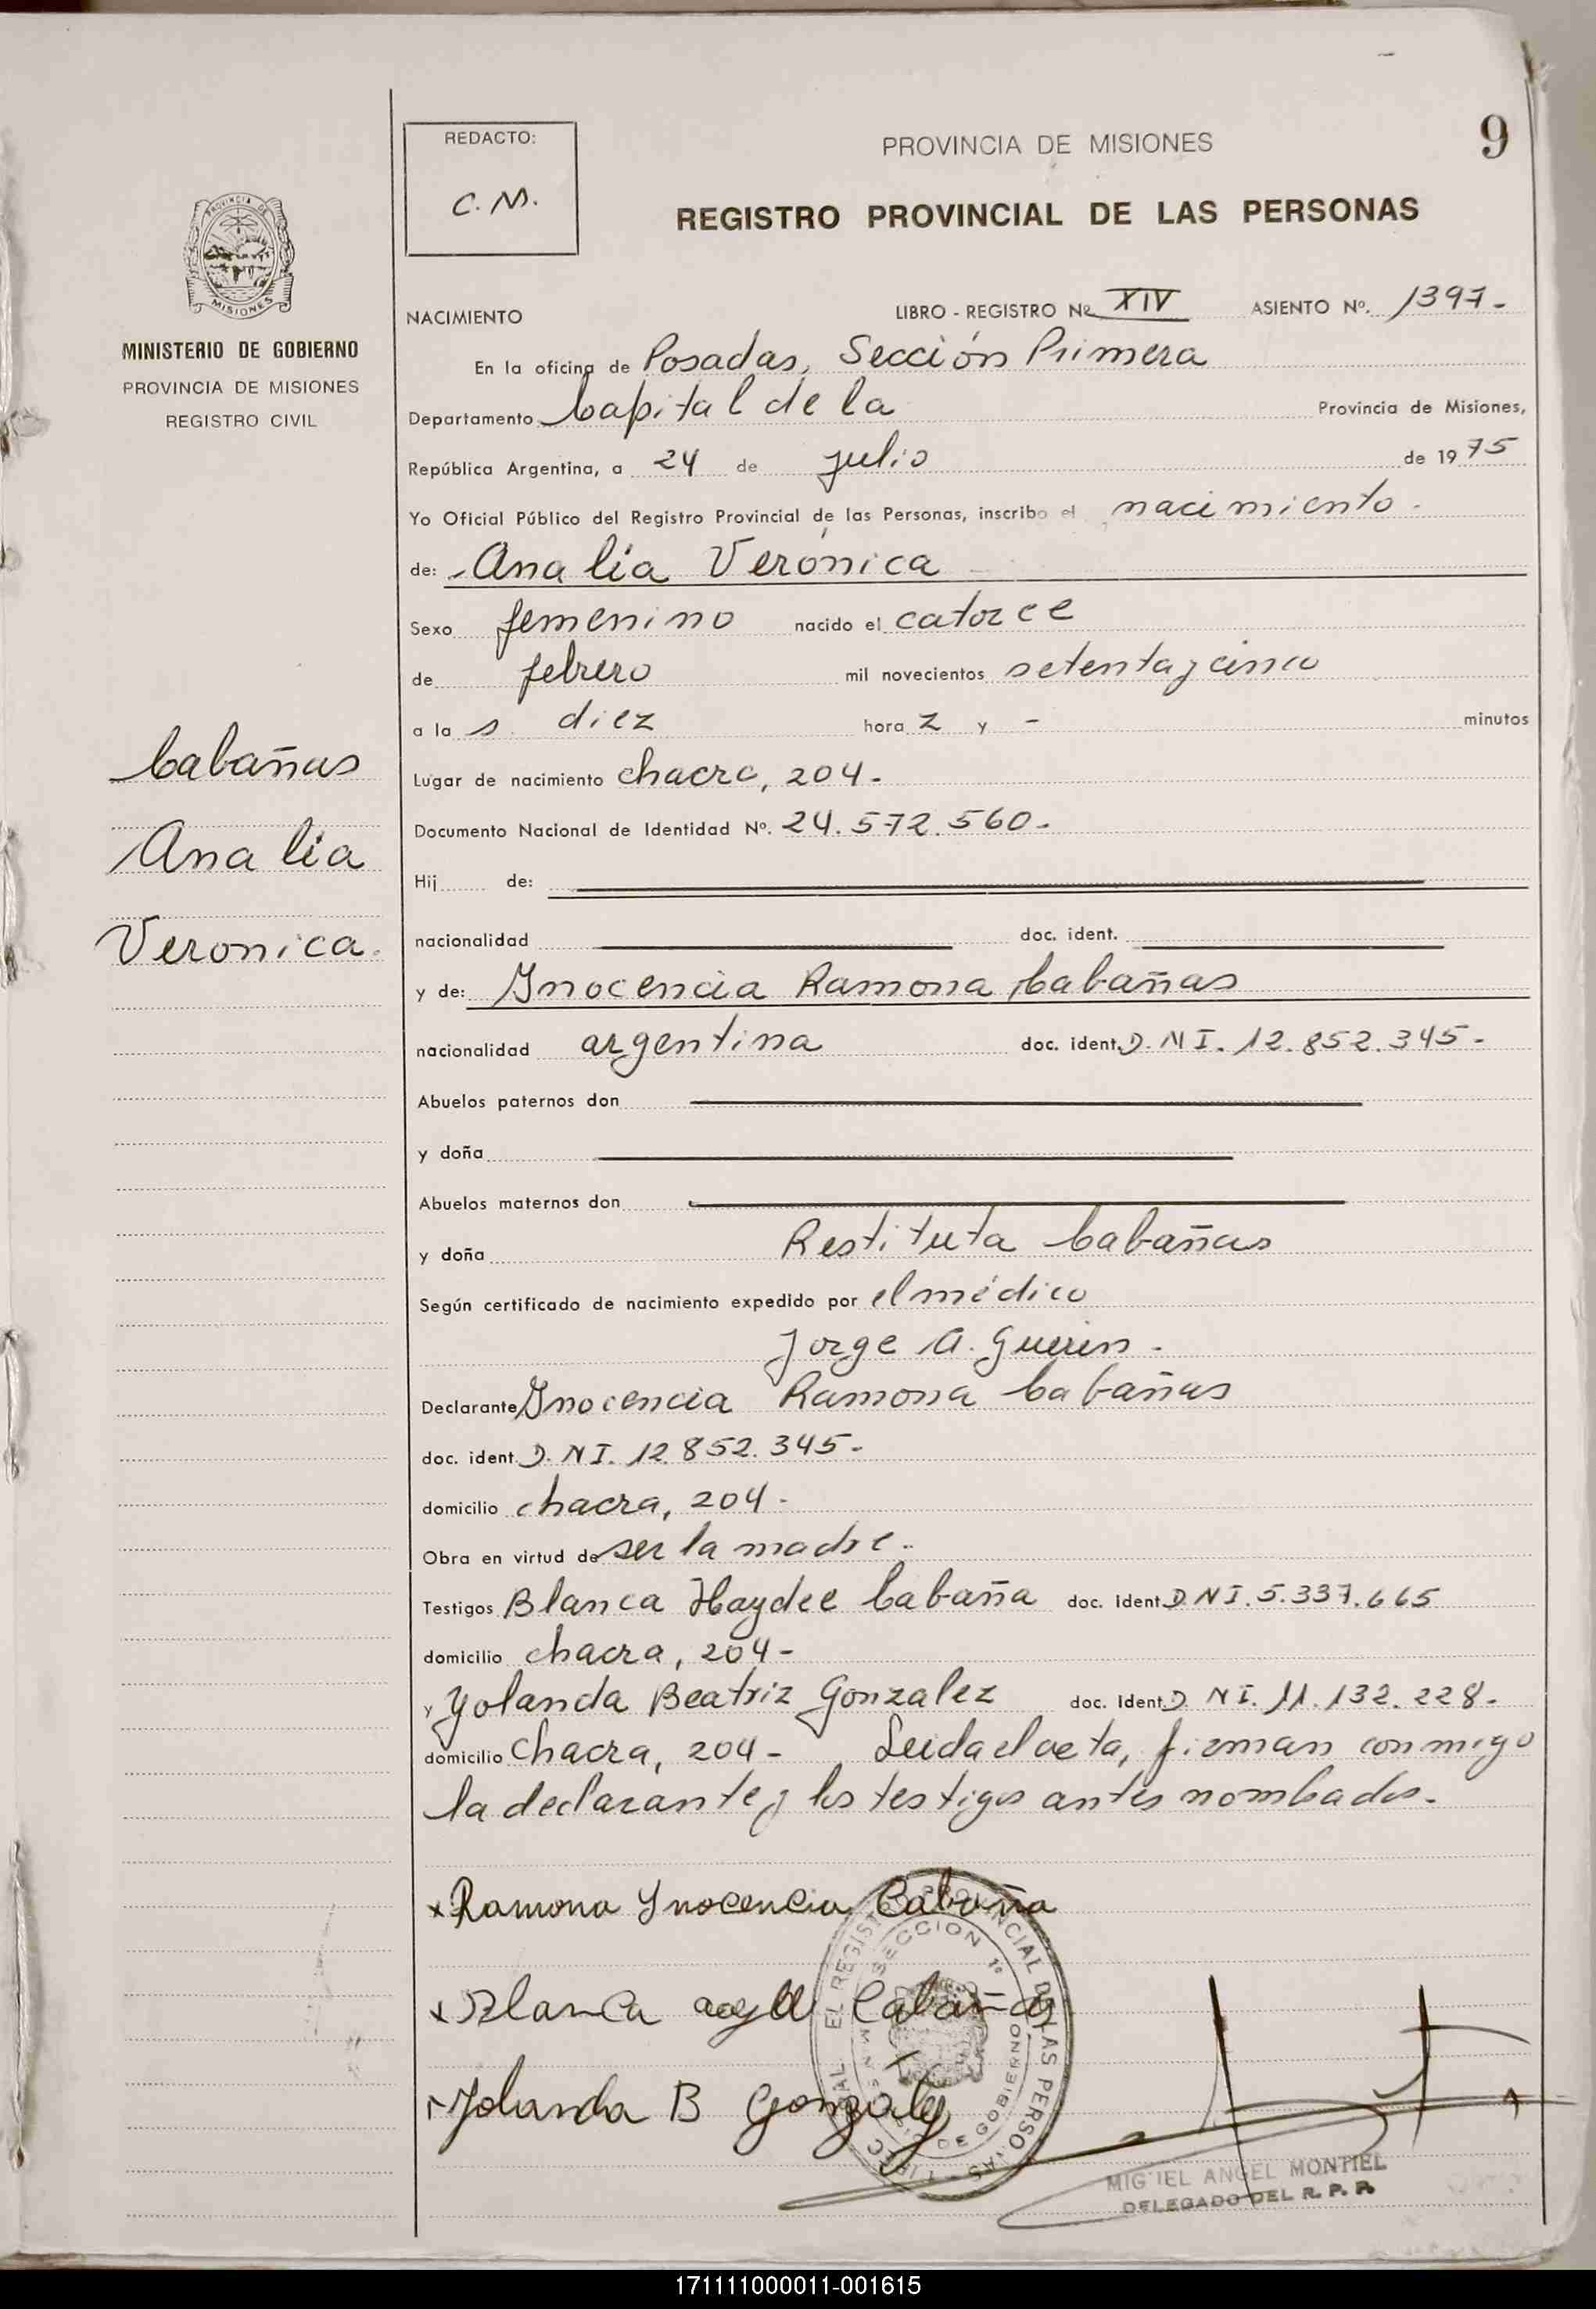 9
REDACTO:
C. M.
PROVINCIA DE MISIONES
REGISTRO PROVINCIAL DE LAS PERSONAS
PROVINCIA DE
MISIONES
MINISTERIO DE GOBIERNO
PROVINCIA DE MISIONES
REGISTRO CIVIL
Cabañas
Analia
Veronica.
NACIMIENTO LIBRO - REGISTRO Nº XIV ASIENTO Nº. 1397-
En la oficina de Posadas, Sección Primera
Departamento Capital de la Provincia de Misiones,
República Argentina, a 24 de julio de 1975
Yo Oficial Público del Registro Provincial de las Personas, inscribo el nacimiento.
de: Analía Verónica
Sexo femenino nacido el catorce
de febrero mil novecientos setenta y cinco
a la s diez hora z y - minutos
Lugar de nacimiento chacra, 204-
Documento Nacional de Identidad Nº. 24.572.560-
Hij de:
nacionalidad doc. ident.
y de: Inocencia Ramona Cabañas
nacionalidad argentina doc. ident. D.N I. 12.852.345-
Abuelos paternos don
y doña
Abuelos maternos don
y doña Restituta Cabañas
Según certificado de nacimiento expedido por el médico
Jorge A. Guerin.
Declarante Inocencia Ramona Cabañas
doc. ident. D. N I. 12.852.345-
domicilio chacra, 204-
Obra en virtud de ser la madre.
Testigos Blanca Haydee Cabaña doc. Ident. D N I. 5.337.665
domicilio chacra, 204-
y Yolanda Beatriz Gonzalez doc. Ident. D. N I. 11.132.228-
domicilio Chacra, 204- Leida el acta, firman conmigo
la declarante y los testigos antes nombados.
x Ramona Ynocencia Cabaña
x Blanca Cabaña
Yolanda B Gonzalez
EL REGISTRO PROVINCIAL DE LAS PERSONAS
SECCION 1º
DE GOBIERNO
MIGUEL ANGEL MONTIEL
DELEGADO DEL R. P. P.
171111000011-001615